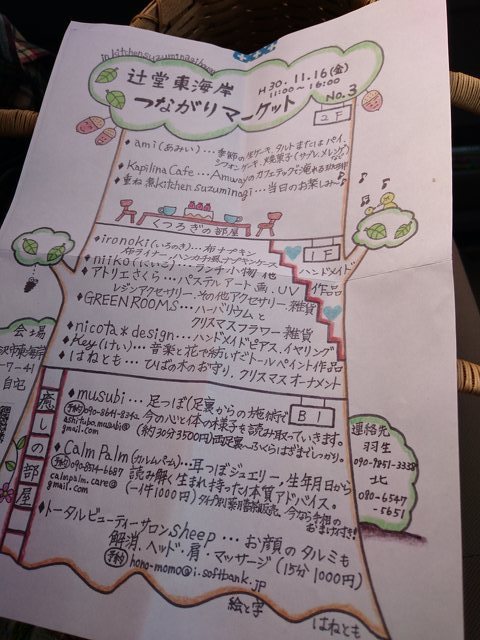 in kitchen suzuminagi home
辻堂東海岸
つながりマーケット
H30. 11.16(金)
11:00〜16:00
No.3
2F
◆ami(あみい)…季節の生ケーキ、タルトまたはパイ、
シフォンケーキ、焼菓子(サブレ、メレンゲ)
◆Kapilina Cafe…Amwayのカフェテックで淹れる珈琲
◆重ね煮kitchen suzuminagi…当日のお楽しみ〜♪
くつろぎの部屋
1F
ハンドメイド
作品
◆ironoki(いろのき)…布ナプキン
布ライナー、ハンカチ風ナプキンケース
◆niiko(にいこ)…ランチ小物 他
◆アトリエさくら…パステルアート画、UV
レジンアクセサリー、その他アクセサリー、雑貨
◆GREEN ROOMS…ハーバリウムと
クリスマスフラワー雑貨
◆nicota*design…ハンドメイドピアス、イヤリング
◆Key(けい)…音楽と花で紡いだトールペイント作品
◆はねとも…ひばの木のお守り、クリスマスオーナメント
B1
癒しの部屋
◆musubi…足つぼ(足裏からの施術で
今の心と体の様子を読み取っていきます。
(約30分3500円)両足裏〜ふくらはぎまでしっかり。
予約
ashitubo.musubi@
gmail.com
◆Calm Palm(カルムパーム)…耳つぼジュエリー、生年月日から
読み解く生まれ持った本質アドバイス。
(一件1000円)
予約
calmpalm.care@
gmail.com
◆トータルビューティーサロンsheep…お顔のタルミも
解消、ヘッド・肩・マッサージ(15分1000円)
予約 hono-momo@i.softbank.jp
絵と字
はねとも
会場
7-41
自宅
連絡先
羽生
090-9851-3338
北
080-6547
-5651